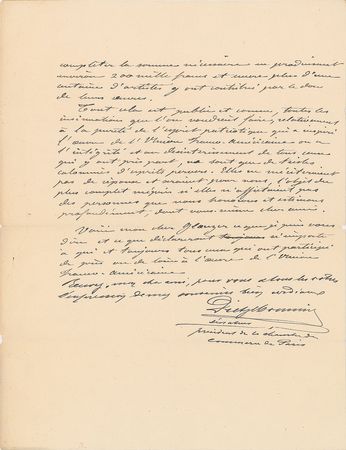 compléter la somme nécessaire en produisant
environ 200 mille francs et encore plus d'une
centaine d'artistes y ont contribué par le don
de leurs œuvres.
Tout cela est public et connu, toutes les
insinuations que l'on voudrait faire, relativement
à la pureté de l'esprit patriotique qui a inspiré
l'œuvre de l'Union franco-américaine ou à
l'intégrité et au désintéressement de tous ceux
qui y ont pris part, ne sont que de tristes
calomnies d'esprits pervers. Elles ne méritent
pas de réponse et seraient pour nous, l'objet du
plus complet mépris si elles n'affectaient pas
des personnes que nous honorons et estimons
profondément, dont vous mon cher ami.
Voilà mon cher Glaenzer ce que je puis vous
dire et ce que déclareront toujours n'importe
à qui et toujours tous ceux qui ont participé
de près ou de loin à l'œuvre de l'Union
franco-américaine.
Recevez, mon cher ami, pour vous et tous les vôtres
l'expression de mes souvenirs bien cordiaux
Dietz Monnin
sénateur
président de la chambre de
commerce de Paris